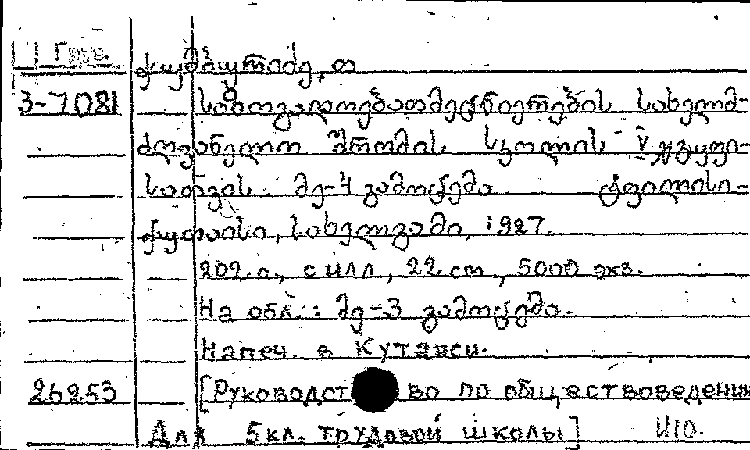 ქუმბურიძე, თ
3-7081 საზოგადოებათმეცნიერების სახელმ-
ძღვანელო შრომის სკოლის V ჯგუფი-
სათვის. მე-4 გამოცემა. ტფილისი-
ქუთაისი, სახელგამი, 1927.
202 გ., с илл., 22 см., 5000 экз.
На обл.: მე-3 გამოცემა.
Напеч. в Кутаиси.
26253 [Руководство по обществоведению
Для 5 кл. трудовой школы]